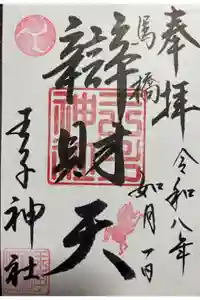 奉拝
馬橋
辯財天
王子神社
令和八年
如月一日